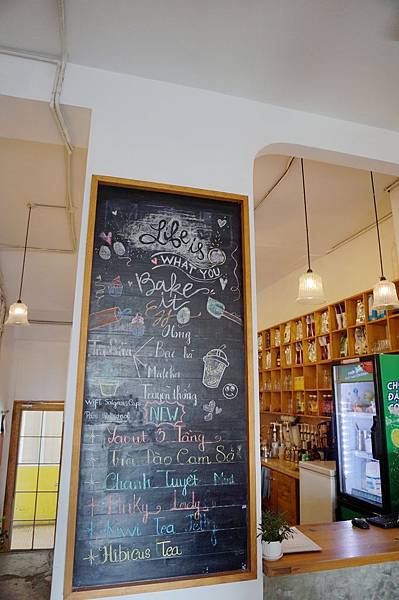 Life is
WHAT YOU
Bake
it
Hồng
Trà sữa Bạc hà
Matcha
Truyền thống
WIFI: Saigon's Cup
Pass:
NEW
Yaourt 3 Tầng
Trà Đào Cam Sả
Chanh Tuyết Mint
Pinky Lady
Kiwi Tea Jelly
Hibicus Tea